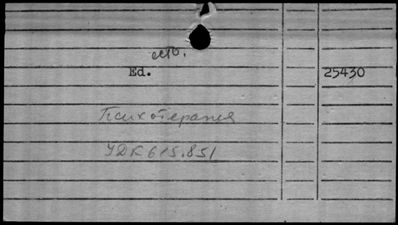 est.
Ed. 25430
Психотерапия
УДК 615.851